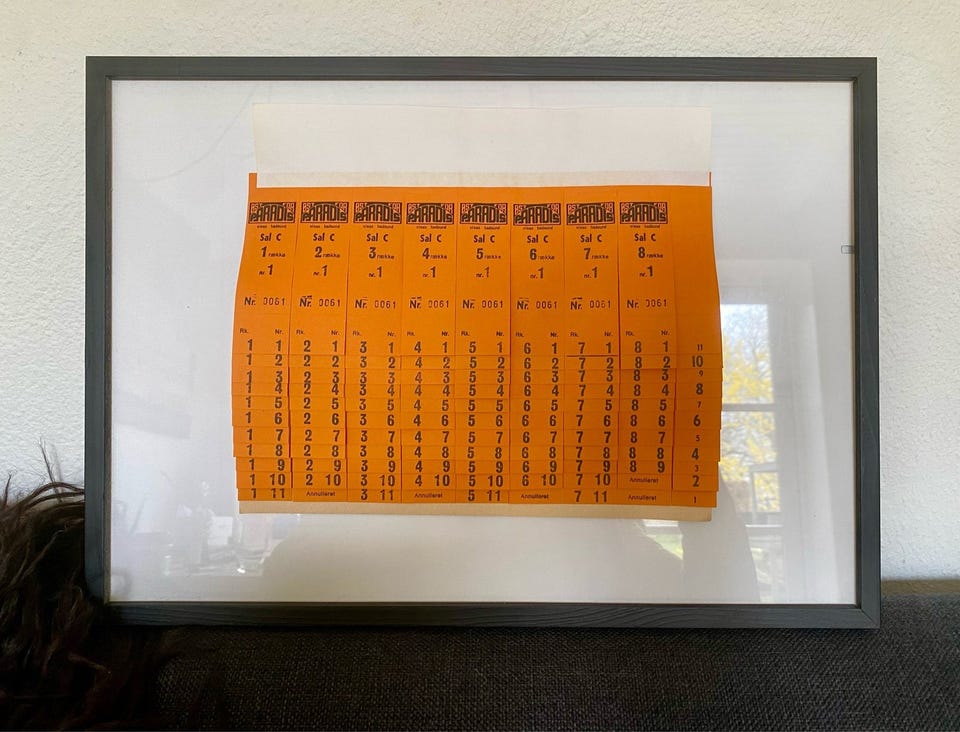 ØST FOR PARADIS ØST FOR PARADIS ØST FOR PARADIS ØST FOR PARADIS ØST FOR PARADIS ØST FOR PARADIS ØST FOR PARADIS ØST FOR PARADIS
Sal C Sal C Sal C Sal C Sal C Sal C Sal C Sal C
1 række 2 række 3 række 4 række 5 række 6 række 7 række 8 række
nr. 1 nr. 1 nr. 1 nr. 1 nr. 1 nr. 1 nr. 1 nr. 1
Nr. 0061 Nr. 0061 Nr. 0061 Nr. 0061 Nr. 0061 Nr. 0061 Nr. 0061 Nr. 0061
Rk. Nr. Rk. Nr. Rk. Nr. Rk. Nr. Rk. Nr. Rk. Nr. Rk. Nr. Rk. Nr.
1 1 2 1 3 1 4 1 5 1 6 1 7 1 8 1 11
1 2 2 2 3 2 4 2 5 2 6 2 7 2 8 2 10
1 3 2 3 3 3 4 3 5 3 6 3 7 3 8 3 9
1 4 2 4 3 4 4 4 5 4 6 4 7 4 8 4 8
1 5 2 5 3 5 4 5 5 5 6 5 7 5 8 5 7
1 6 2 6 3 6 4 6 5 6 6 6 7 6 8 6 6
1 7 2 7 3 7 4 7 5 7 6 7 7 7 8 7 5
1 8 2 8 3 8 4 8 5 8 6 8 7 8 8 8 4
1 9 2 9 3 9 4 9 5 9 6 9 7 9 8 9 3
1 10 2 10 3 10 4 10 5 10 6 10 7 10 Annulleret 2
1 11 Annulleret 3 11 Annulleret 5 11 Annulleret 7 11 1